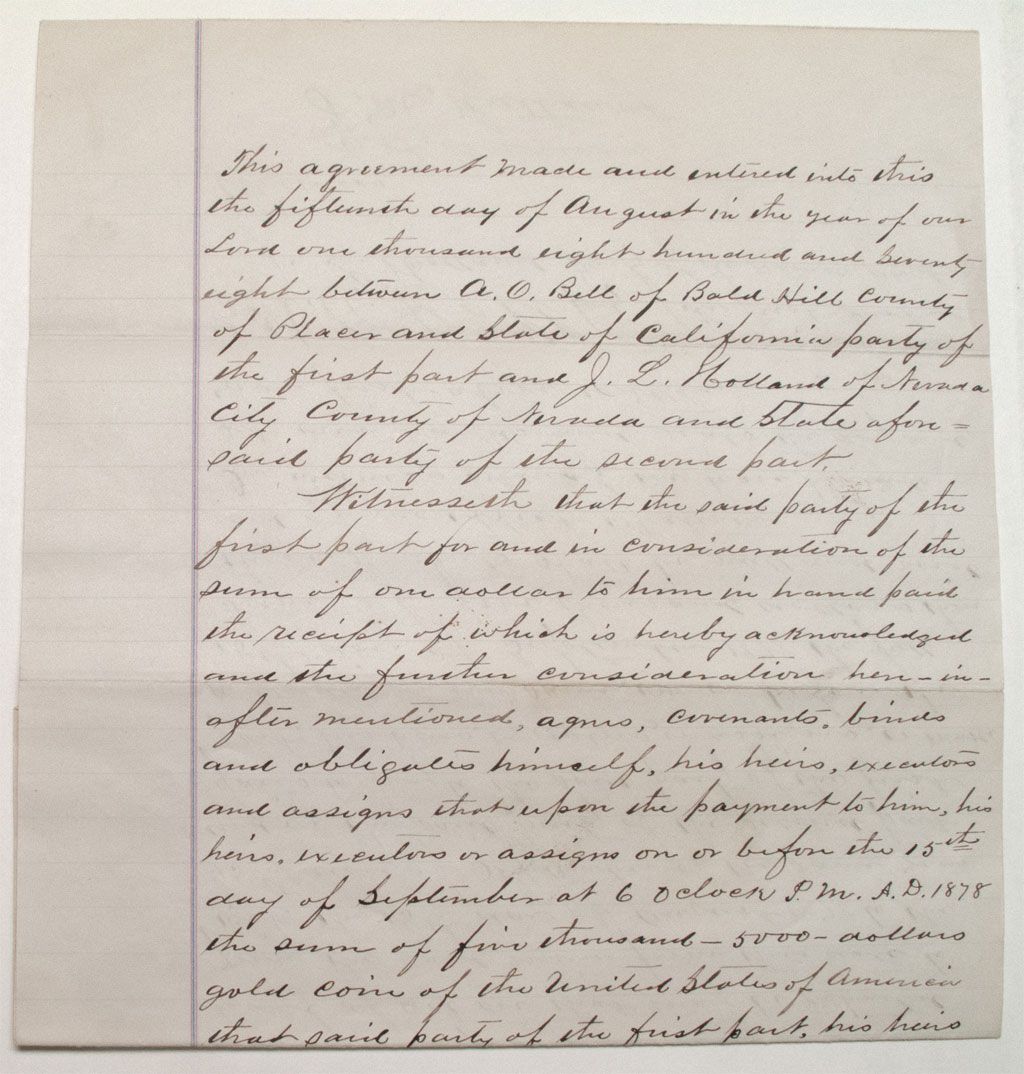 This agreement made and entered into this
the fifteenth day of August in the year of our
Lord one thousand eight hundred and seventy
eight between A. O. Bell of Bald Hill County
of Placer and State of California party of
the first part and J. L. Holland of Nevada
City County of Nevada and State afore=
said party of the second part.
Witnesseth that the said party of the
first part for and in consideration of the
sum of one dollar to him in hand paid
the receipt of which is hereby acknowledged
and the further consideration here-in-
after mentioned, agrees, covenants, binds
and obligates himself, his heirs, executors
and assigns that upon the payment to him, his
heirs, executors or assigns on or before the 15th
day of September at 6 Oclock P.M. A.D. 1878
the sum of five thousand - 5000 - dollars
gold coin of the United States of America
that said party of the first part, his heirs